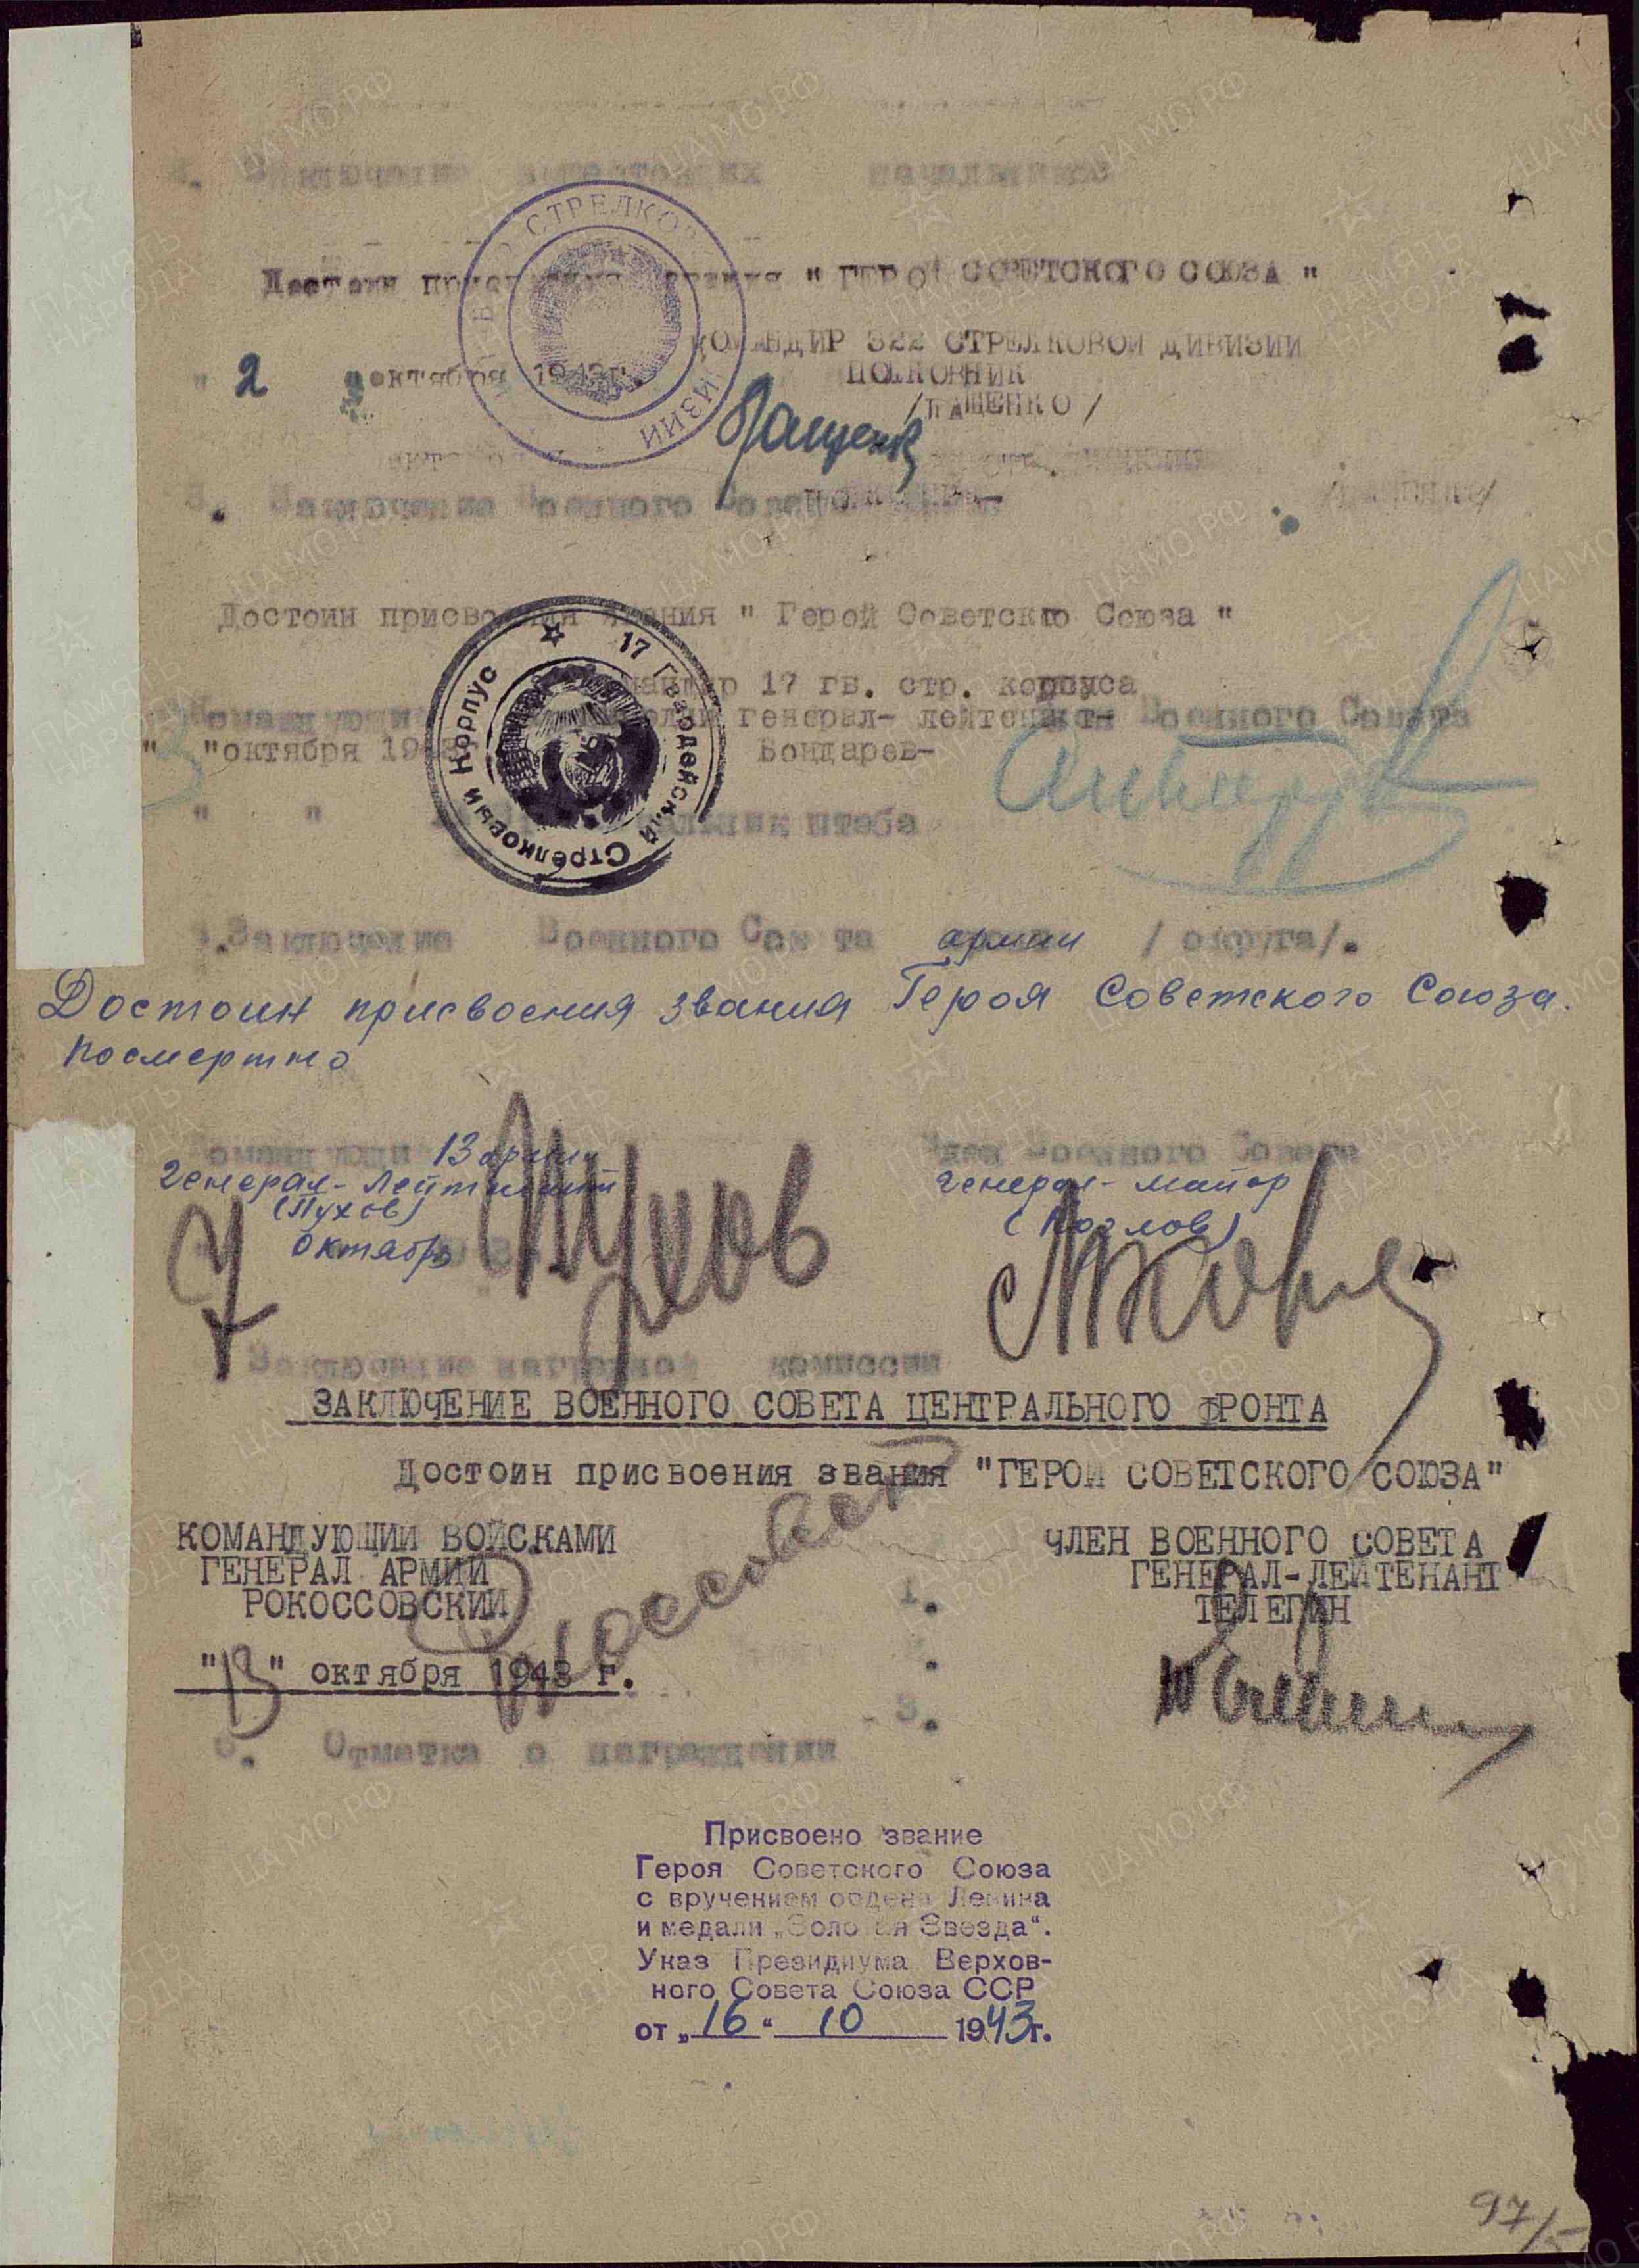 Заключение вышестоящих начальников
Достоин присвоения звания " ГЕРОЙ СОВЕТСКОГО СОЮЗА "
КОМАНДИР 322 СТРЕЛКОВОЙ ДИВИЗИИ
" 2 октября 1943г. ПОЛКОВНИК
/ЛАЩЕНКО/
Лащенко
Заключение Военного Совета
Достоин присвоения звания " Герой Советского Союза "
Командир 17 гв. стр. корпуса
генерал- лейтенант-
" "октября 194
Бондарев-
Военного Совета
17 Гвардейский Стрелковый Корпус
штаба
Заключение Военного Совета армии /округа/.
Достоин присвоения звания Героя Советского Союза.
посмертно
Командующий 13 армии
Член Военного Совета
генерал-лейтенант
генерал-майор
(Пухов)
(Козлов)
7 октября
Пухов
Заключение наградной комиссии
ЗАКЛЮЧЕНИЕ ВОЕННОГО СОВЕТА ЦЕНТРАЛЬНОГО ФРОНТА
Достоин присвоения звания "ГЕРОЙ СОВЕТСКОГО СОЮЗА"
КОМАНДУЮЩИЙ ВОЙСКАМИ
ЧЛЕН ВОЕННОГО СОВЕТА
ГЕНЕРАЛ АРМИИ
ГЕНЕРАЛ-ЛЕЙТЕНАНТ
РОКОССОВСКИЙ
ТЕЛЕГИН
1.
"13" октября 1943 г.
3.
Отметка о награждении
Присвоено звание
Героя Советского Союза
с вручением ордена Ленина
и медали „Золотая Звезда“.
Указ Президиума Верхов-
ного Совета Союза ССР
от „16“ 10 1943г.
97/